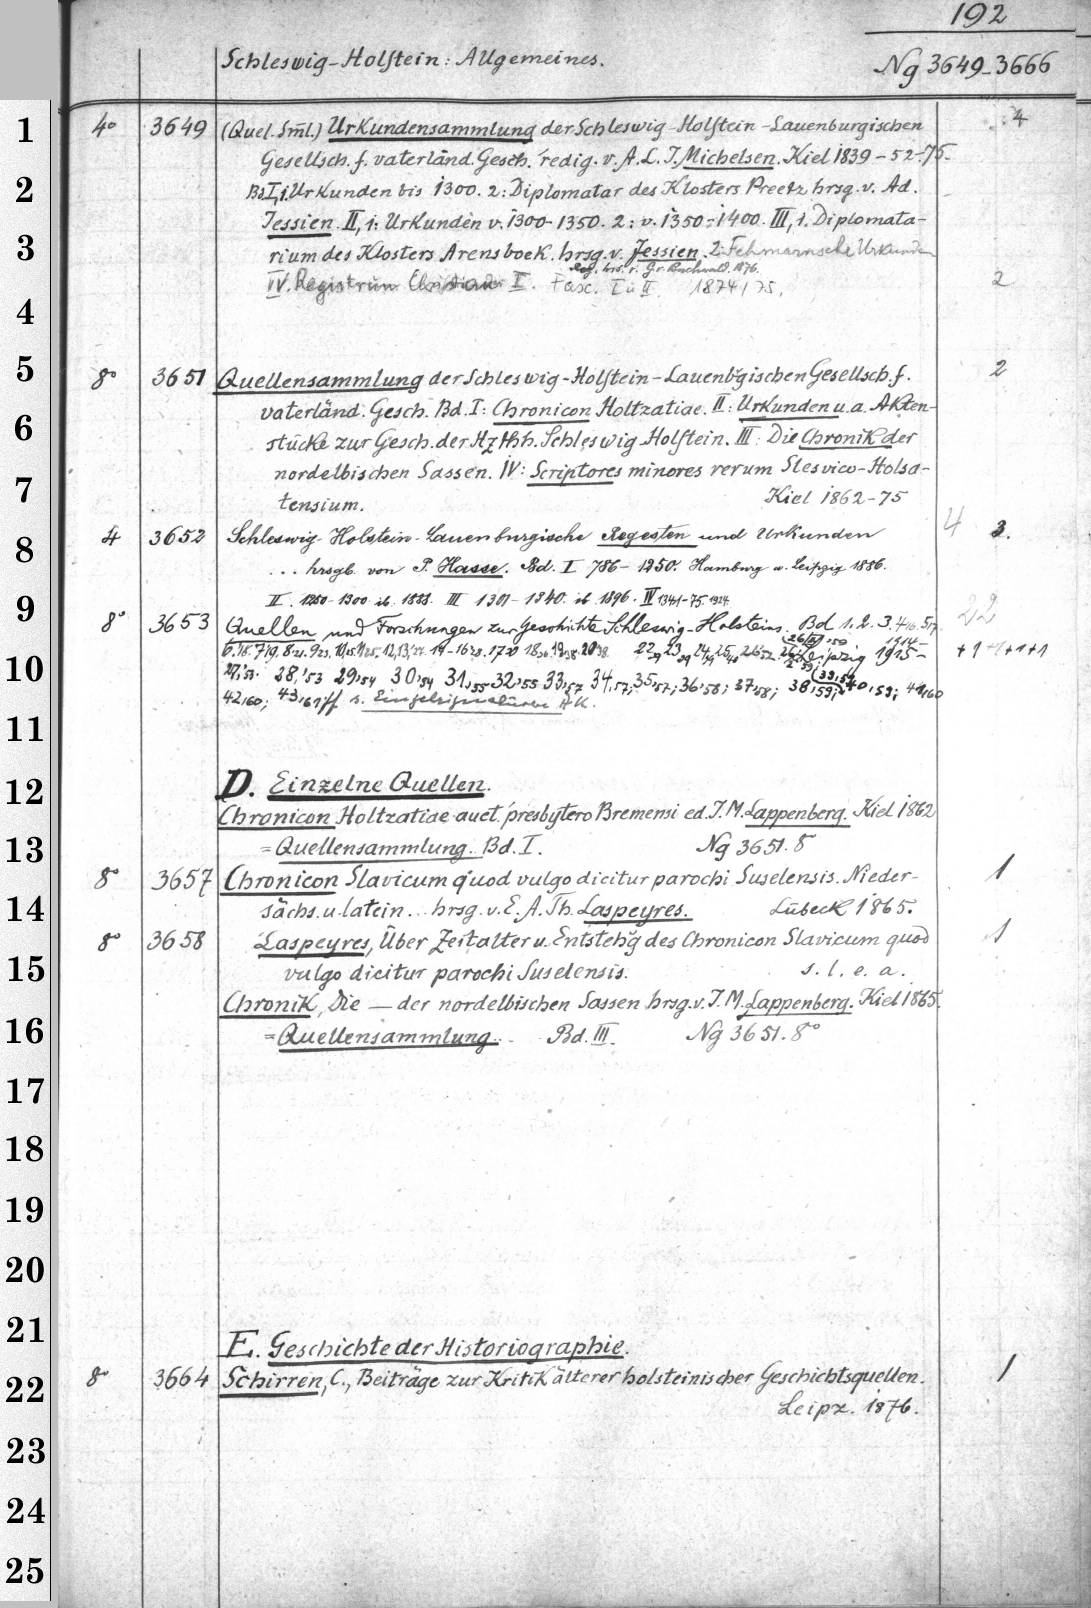 192
Schleswig-Holstein: Allgemeines. Ng 3649-3666
1 4° 3649 (Quel. Sml.) Urkundensammlung der Schleswig-Holstein-Lauenburgischen 4
Gesellsch. f. vaterländ. Gesch. redig. v. A. L. J. Michelsen. Kiel 1839-52-75.
2 Bd I, 1. Urkunden bis 1300. 2: Diplomatar des Klosters Preetz hrsg. v. Ad.
Jessien. II, 1: Urkunden v. 1300-1350. 2: v. 1350-1400. III, 1. Diplomata-
3 rium des Klosters Arensboek. hrsg. v. Jessien. 2: Fehmarnsche Urkunden
Reg. hrs. v. 1876.
4 IV. Registrum Christiani I. Fasc. I u II. 1874/75. 2
5 8° 3651 Quellensammlung der Schleswig-Holstein-Lauenbgischen Gesellsch. f. 2
vaterländ. Gesch. Bd. I: Chronicon Holtzatiae. II: Urkunden u. a. Akten-
6 stücke zur Gesch. der Hzthh. Schleswig Holstein. III: Die Chronik der
7 nordelbischen Sassen. IV: Scriptores minores rerum Slesvico-Holsa-
tensium. Kiel 1862-75
8 4 3652 Schleswig-Holstein-Lauenburgische Regesten und Urkunden 4 3.
... hrsgb. von P. Hasse. Bd. I 786-1250. Hamburg u. Leipzig 1886.
9 II. 1250-1300 ib. 1888. III 1301-1340. ib 1896. IV 1341-75. 1924
8° 3653 Quellen und Forschungen zur Geschichte Schleswig-Holsteins. Bd 1. 2. 3. 22
10 Leipzig 1915- +1+1+1+1
28,'53 29,'54 30,'54 31,'55 32,'55 33,'57 34,'57; 35,'57; 36,'58; 37,'58; 38,'59; 40,'59; 41,'60
42,'60; 43,'61 ff s.
11
D. Einzelne Quellen.
12 Chronicon Holtzatiae auct. presbytero Bremensi ed. J. M. Lappenberg. Kiel 1862
13 = Quellensammlung. Bd. I. Ng 3651. 8
8° 3657 Chronicon Slavicum quod vulgo dicitur parochi Suselensis. Nieder- 1
14 sächs. u. latein... hrsg. v. E. A. Th. Laspeyres. Lübeck 1865.
8° 3658 Laspeyres, Über Zeitalter u. Entstehg des Chronicon Slavicum quod 1
15 vulgo dicitur parochi Suselensis. s. l. e. a.
Chronik, Die — der nordelbischen Sassen hrsg. v. J. M. Lappenberg. Kiel 1865.
16 = Quellensammlung. Bd. III. Ng 3651. 8°
17
18
19
20
21 E. Geschichte der Historiographie.
22 8° 3664 Schirren, C., Beiträge zur Kritik älterer holsteinischer Geschichtsquellen. 1
Leipz. 1876.
23
24
25